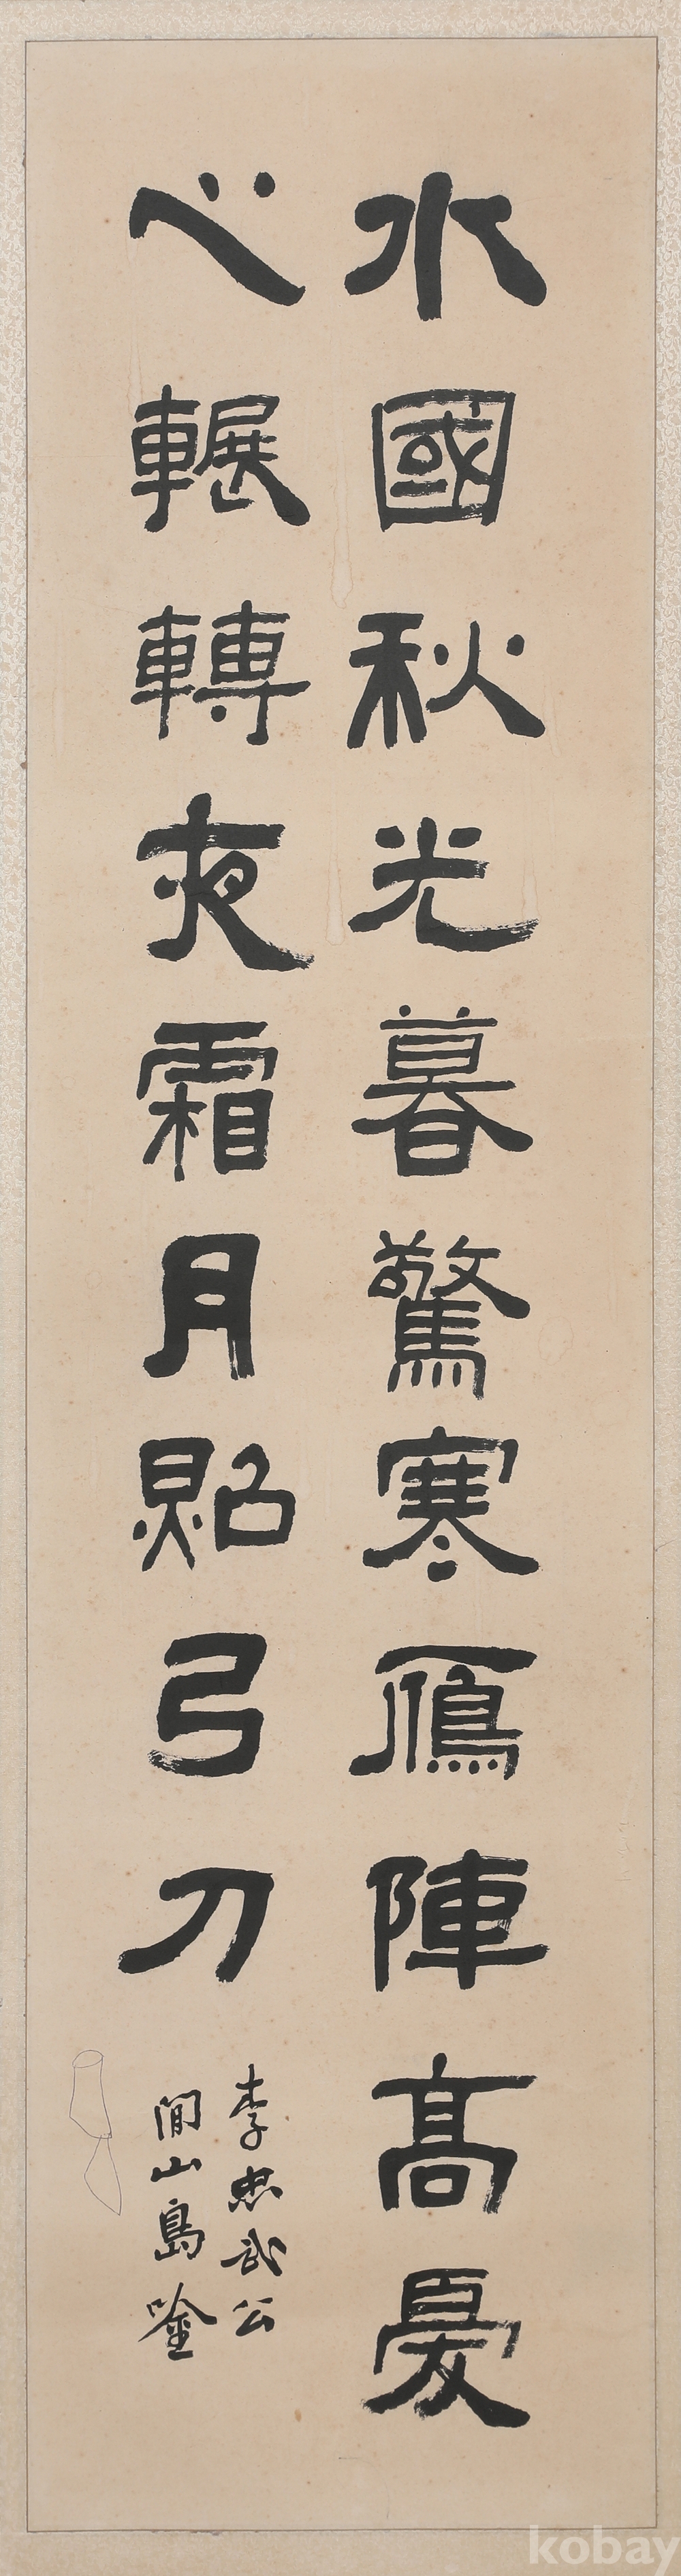 水國秋光暮驚寒鴈陣高憂
心輾轉夜霜月照弓刀
李忠武公
閒山島唫
kobay